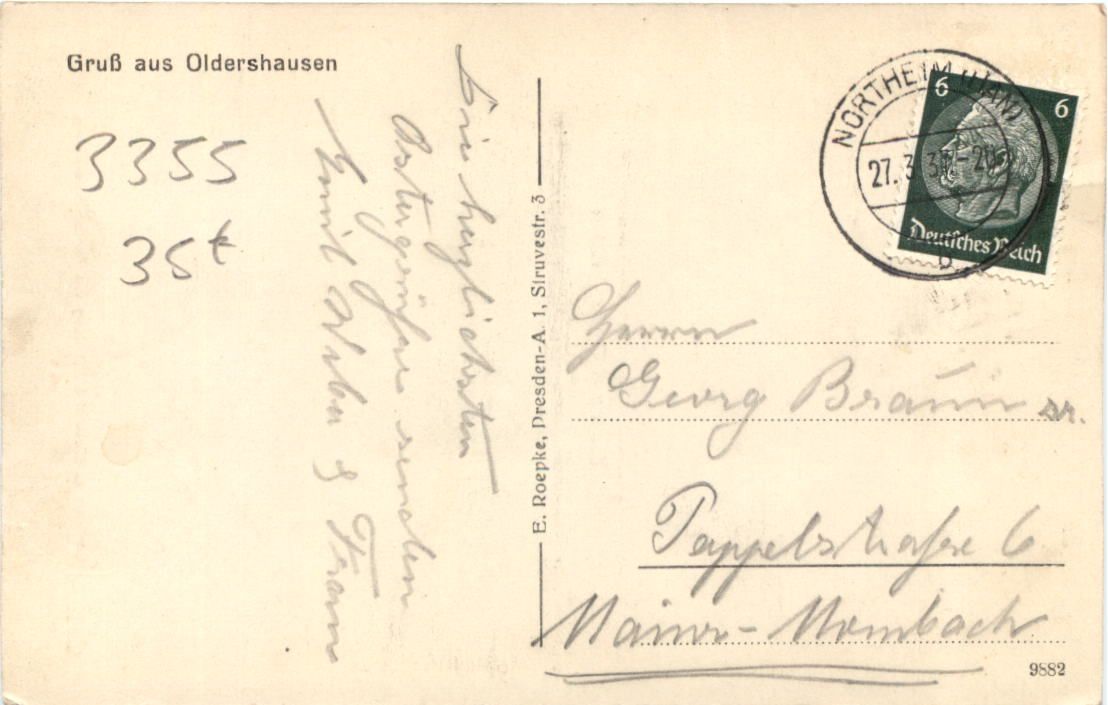 Gruß aus Oldershausen
3355
36 t
Die herzlichsten
Ostergrüße senden
Emil Weber & Frau
E. Roepke, Dresden-A. 1, Struvestr. 3
NORTHEIM (HAN)
27.3.
-20
b
6 6
Deutsches Reich
Herrn
Georg Braun sr.
Pappelstraße 6
Mainz-Mombach
9882